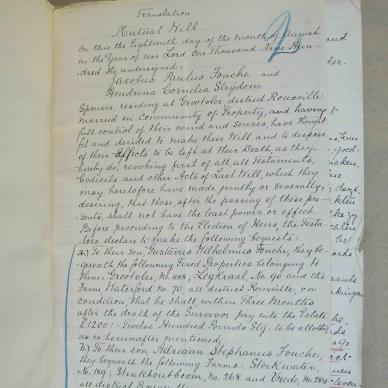 Translation.
Mutual Will.
On this the Eighteenth day of the Month of August
in the Year of our Lord, One Thousand Nine Hun-
dred the undersigned:
Jacobus Paulus Fouche and
Hendrena Cornelia Strydom
Spouses, residing at Grootvlei district Rouxville
married in community of Property, and having
full control of their mind and senses, have thought
fit and decided to make their Will and to dispose
of their Effects to be left at their Death as they
hereby do, revoking first of all all Testaments,
Codicils and other Acts of Last Will, which they
may heretofore have made jointly or severally,
desiring, that those, after the passing of these pre-
sents, shall not have the least power or effect.
Before proceeding to the Election of Heirs, the Testa-
tors declare to make the following bequests:
a) To their Son Gustavus Wilhelmus Fouche, they be-
queath the following Fixed Properties belonging to
them: Grootvlei, No. Legkraal No. 90 and the
Farm Waterford No. 70, all district Rouxville, on
condition, that he shall within Three Months
after the death of the Survivor pay into the Estate
£1200:- Twelve Hundred Pounds Stg. to be allotted
as is hereinafter mentioned.
b) To their son Adriaan Stephanus Fouche,
they bequeath the following Farms: Sterkwater,
No. 189, Stinkhoutboom, No. 268 and Vrede, No. 284
all district